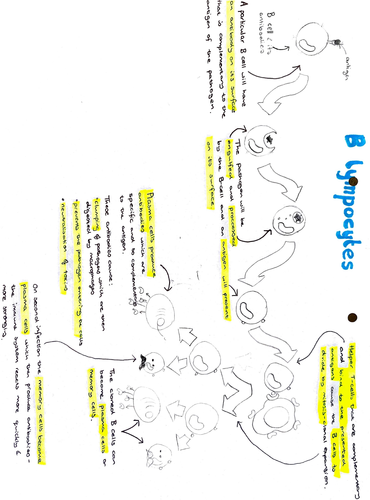 B Lympocytes
B cell & its
antibodies
antigen
A particular B cell will have
an antibody on its surface
that is complementary to the
antigen of the pathogen.
The pathogen will be
engulfed and processed
by the B-cell and an antigen will present
on its surface.
Helper T-cells that are complementary
and bind to the
antigen cause the B cells to
divide by expansion.
Plasma cells produce
antibodies which are
specific and to complementary
to the antigen.
These antibodies cause:
• clumping of pathogens which are then
digested by macrophages
• prevents the pathogen entering the cells
• neutralisation of toxins
The cloned B cells can
become plasma cells or
memory cells.
On second infection the memory cells become
plasma cells which then produce antibodies -
the immune system reacts more quickly &
more strongly.